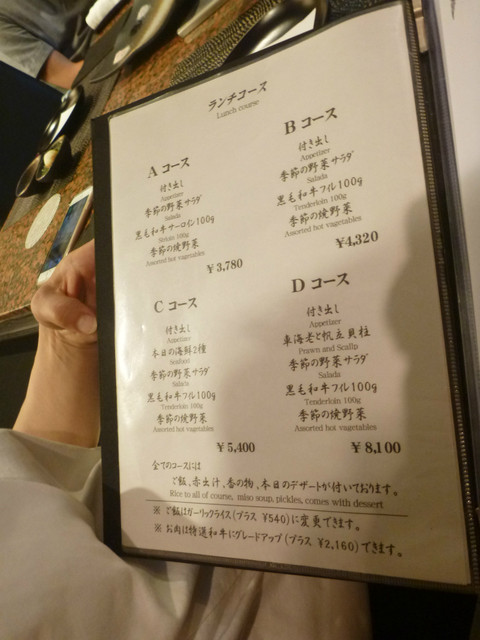 ランチコース
Lunch course
A コース
付き出し
Appetizer
季節の野菜サラダ
Salada
黒毛和牛サーロイン100g
Sirloin 100g
季節の焼野菜
Assorted hot vegetables
¥3,780
B コース
付き出し
Appetizer
季節の野菜サラダ
Salada
黒毛和牛フィレ100g
Tenderloin 100g
季節の焼野菜
Assorted hot vegetables
¥4,320
C コース
付き出し
Appetizer
本日の海鮮2種
Seafood
季節の野菜サラダ
Salada
黒毛和牛フィレ100g
Tenderloin 100g
季節の焼野菜
Assorted hot vegetables
¥5,400
D コース
付き出し
Appetizer
車海老と帆立貝柱
Prawn and Scallp
季節の野菜サラダ
Salada
黒毛和牛フィレ100g
Tenderloin 100g
季節の焼野菜
Assorted hot vegetables
¥8,100
全てのコースには
ご飯、赤出汁、香の物、本日のデザートが付いております。
Rice to all of course, miso soup, pickles, comes with dessert
※ ご飯はガーリックライス(プラス ¥540)に変更できます。
※ お肉は特選和牛にグレードアップ(プラス ¥2,160)できます。